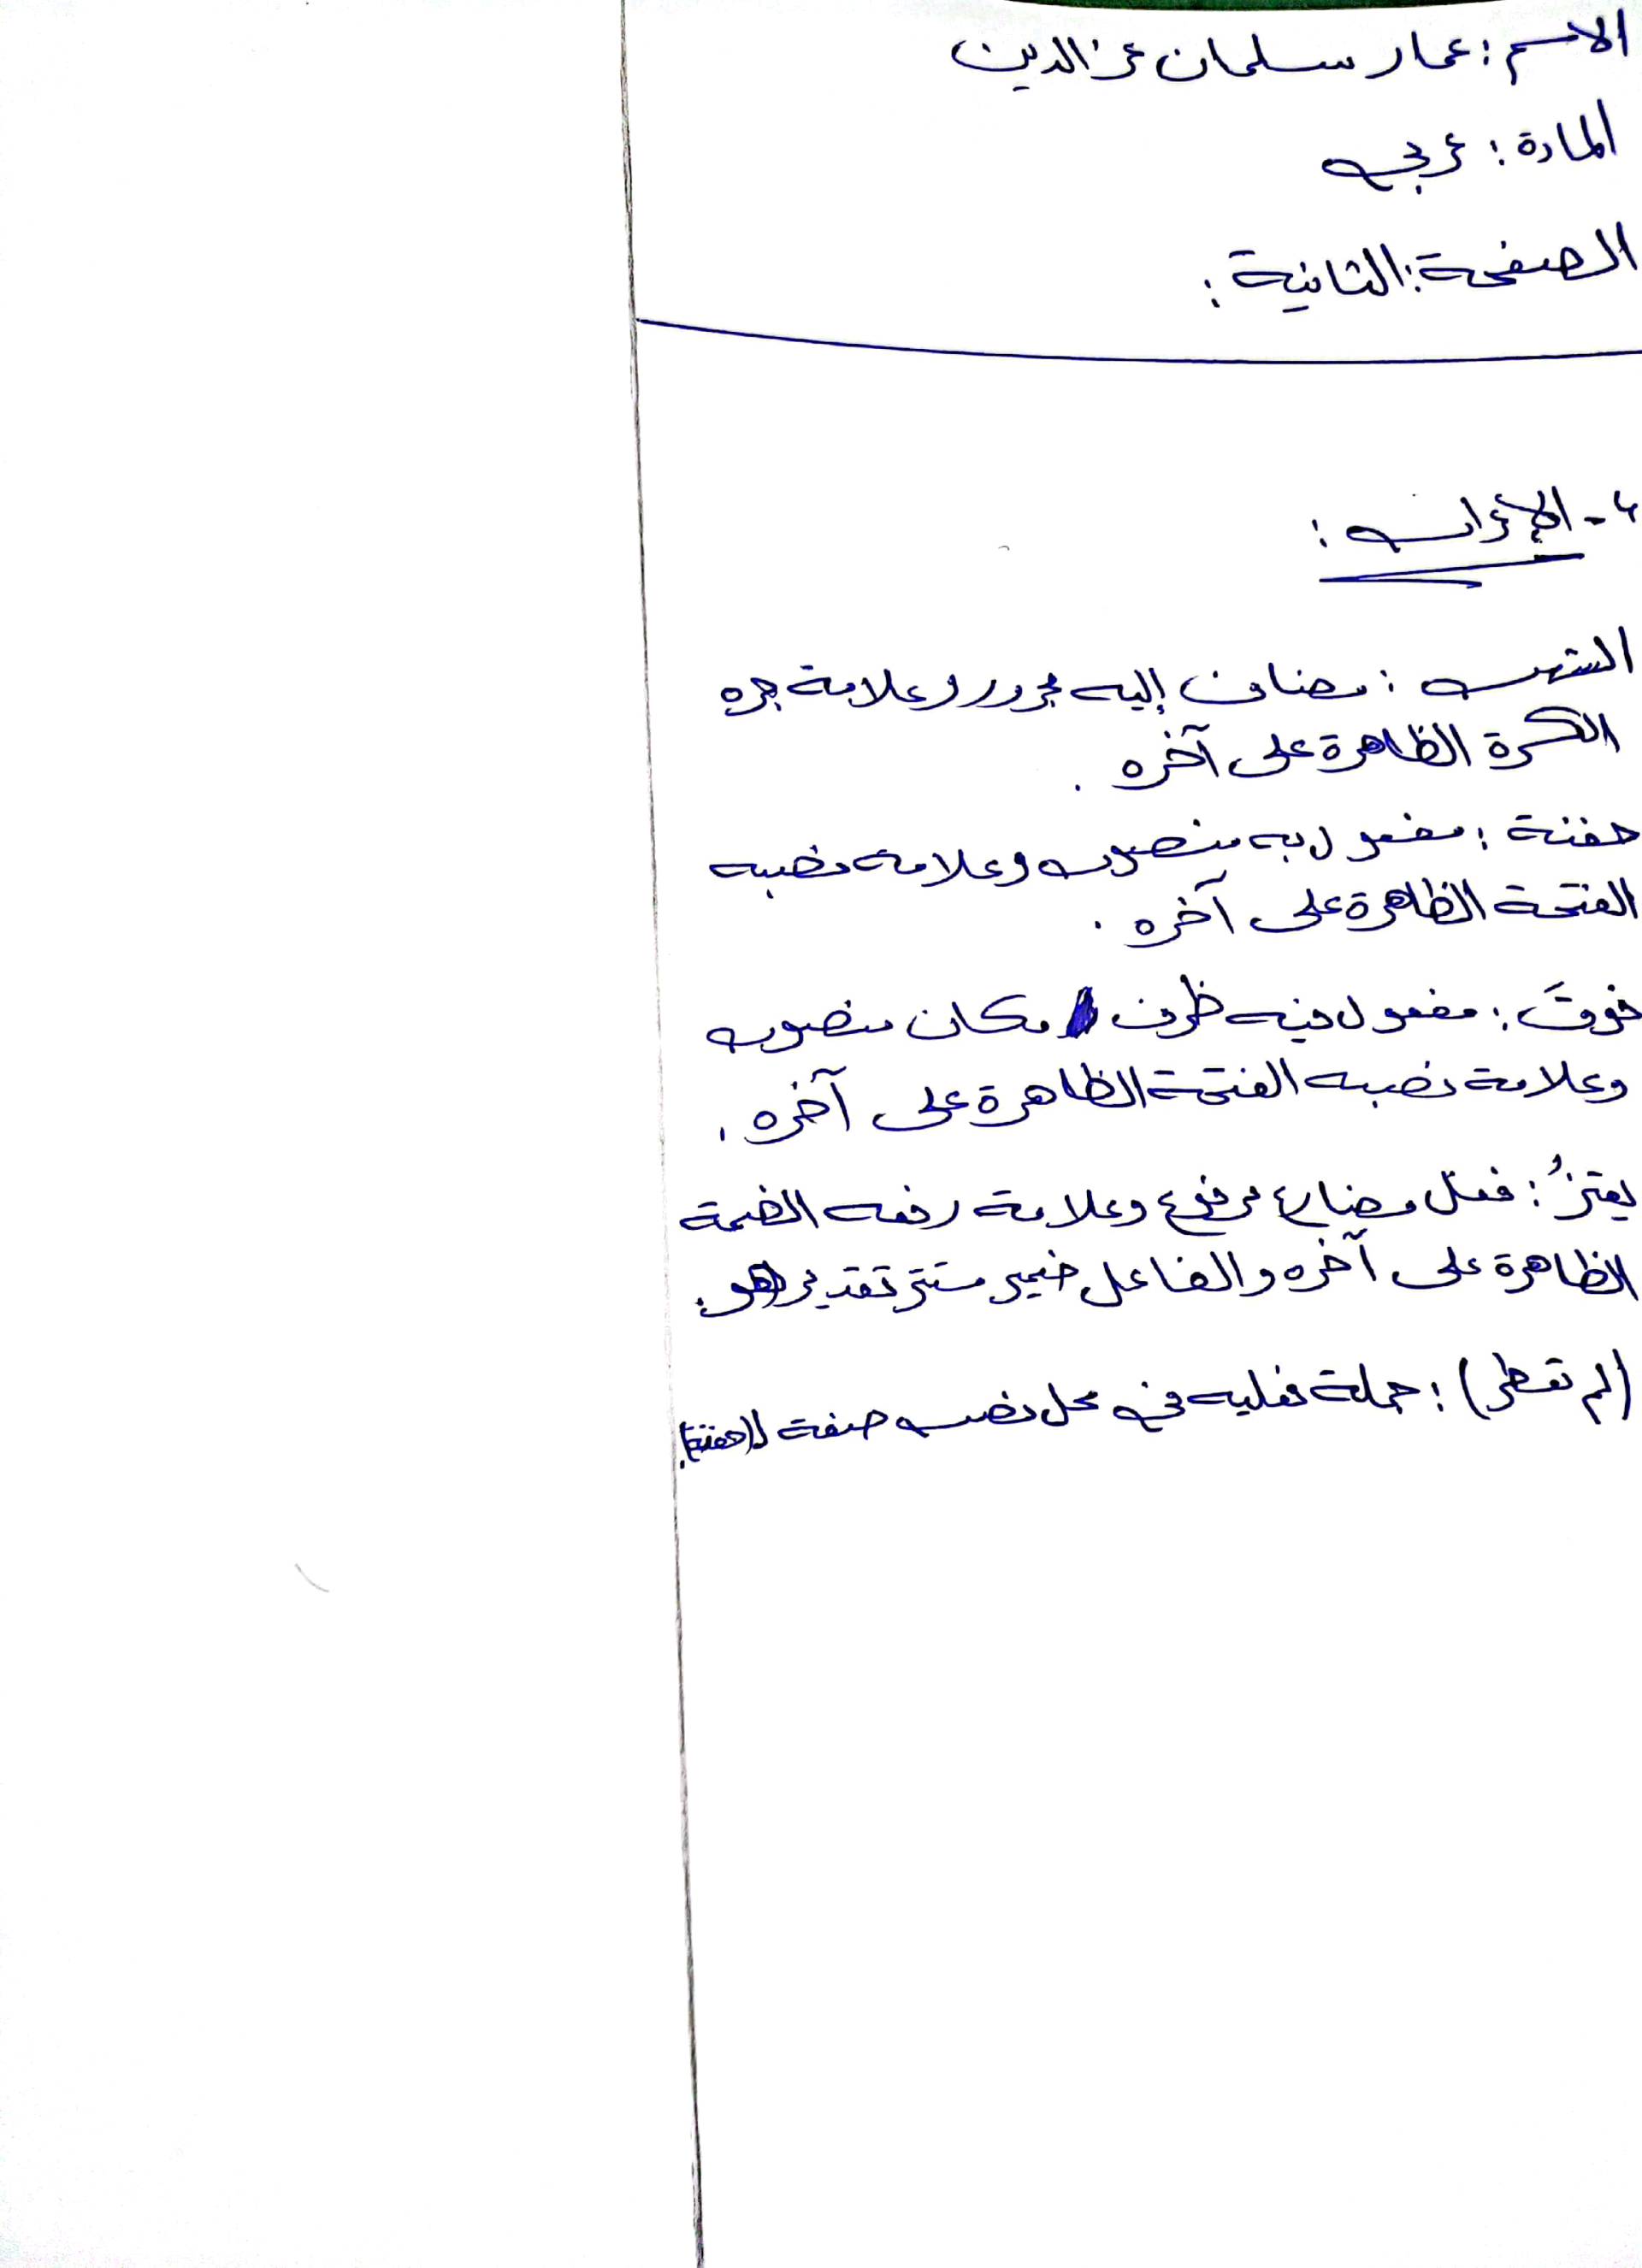 الاسم : عمار سلمان عز الدين
المادة : عربي
الصفحة : الثانية :
٤ - الإعراب :
الشهب : مضاف إليه مجرور وعلامة جره
الكسرة الظاهرة على آخره .
حفنة : مفعول به منصوب وعلامة نصبه
الفتحة الظاهرة على آخره .
فوقَ : مفعول فيه ظرف مكان منصوب
وعلامة نصبه الفتحة الظاهرة على آخره .
يهتزُ : فعل مضارع مرفوع وعلامة رفعه الضمة
الظاهرة على آخره والفاعل ضمير مستتر تقديره هو .
(لم تعطر) : جملة فعليه في محل نصب صفة لـ(حفنة) .